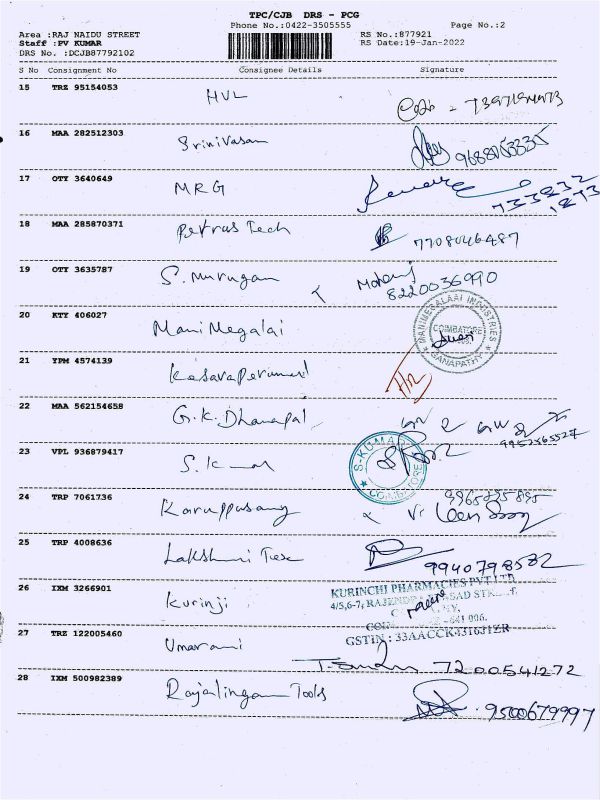 TPC/CJB DRS - PCG
Phone No.:0422-3505555 Page No.:2
Area :RAJ NAIDU STREET RS No.:877921
Staff :PV KUMAR RS Date:19-Jan-2022
DRS No. :DCJB87792102
S No Consignment No Consignee Details Signature
15 TRZ 95154053 HVL
16 MAA 282512303 Srinivasan 9688853335
17 OTT 3640649 MRG
18 MAA 285870371 Petrus Tech 7708046487
19 OTT 3635787 S. Murugan
8220036990
20 KTY 406027 Mani Megalai
MANIMEGALAI INDUSTRIES COIMBATORE GANAPATHY
21 YPM 4574139
22 MAA 562154658 G.K. Dhanapal
9952565527
23 VPL 936879417 S. Kumar
S-KUMAR COIMBATORE
24 TRP 7061736 Karuppasamy
25 TRP 4008636 Lakshmi Tex
9940798582
26 IXM 3266901 Kurinji
KURINCHI PHARMACIES PVT LTD
4/5,6-7, RAJENDRA PRASAD STREET
- 641 006.
GSTIN : 33AACCK4316J1ZR
27 TRZ 122005460 Umarani
7200541272
28 IXM 500982389 Rajalingam Tools
9500679997